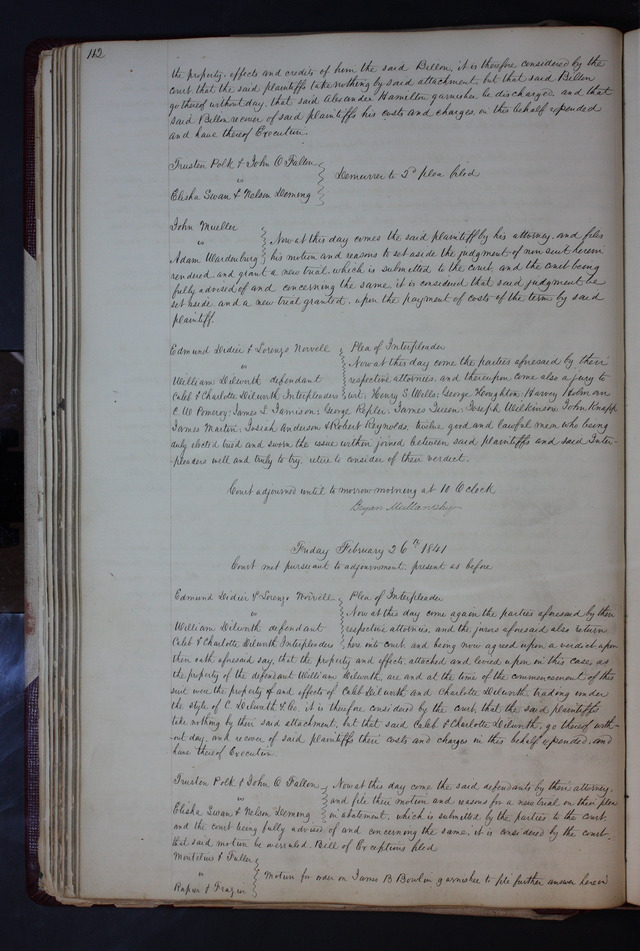 112
the property, effects and credits of him the said Billon, it is therefore considered by the
court that the said plaintiffs take nothing by said attachment, but that said Billon
go thereof without day, that said Alexander Hamilton garnishee be discharged, and that
said Billon recover of said plaintiffs his costs and charges in this behalf expended
and have thereof Execution.
Trusten Polk & John O Fallon
vs
Elisha Swan & Nelson Deming
Demurrer to 2d plea filed
John Mueller
vs
Now at this day comes the said plaintiff by his attorney, and files
Adam Wardenburg his motion and reasons to set aside the judgment of non suit herein
rendered, and grant a new trial, which is submitted to the court, and the court being
fully advised of and concerning the same, it is considered that said judgment be
set aside and a new trial granted, upon the payment of costs of the term by said
plaintiff.
Edmund Didier & Lorenzo Norvell Plea of Interpleader
vs Now at this day come the parties aforesaid by their
William Dilworth defendant respective attornies, and thereupon come also a jury to
Caleb & Charlotte Dilworth Interpleaders wit: Henry S Wells; George Houghton; Harvey
C. W. Pomeroy; James L Jamison; George Kepler; James Queen; Joseph Wilkinson; John Knapp
James Martin; Josiah Anderson & Robert Reynolds, twelve good and lawful men who being
duly elected tried and sworn the issue within joined between said plaintiffs and said Inter-
pleaders well and truly to try, retire to consider of their verdict.
Court adjourned until to morrow morning at 10 O clock
Bryan Mullanphy
Friday February 26th 1841
Court met pursuant to adjournment, present as before
Edmund Didier & Lorenzo Norvell Plea of Interpleader
vs Now at this day come again the parties aforesaid by their
William Dilworth defendant respective attornies, and the jurors aforesaid also return
Caleb & Charlotte Dilworth Interpleaders here into court and being now agreed upon a verdict upon
their oath aforesaid say, that the property and effects, attached and levied upon in this case, as
the property of the defendant William Dilworth, are and at the time of the commencement of this
suit were the property of and effects of Caleb Dilworth and Charlotte Dilworth trading under
the style of C. Dilworth & Co. it is therefore considered by the court, that the said plaintiffs
take nothing by their said attachment, but that said Caleb & Charlotte Dilworth, go thereof with-
-out day, and recover of said plaintiffs their costs and charges in this behalf expended, and
have thereof Execution.
Trusten Polk & John O Fallon Now at this day come the said defendants by their attorney,
vs and file their motion and reasons for a new trial on their plea
Elisha Swan & Nelson Deming in abatement, which is submitted by the parties to the court,
and the court being fully advised of and concerning the same, it is considered by the court,
that said motion be overruled. Bill of Exceptions filed
& Fuller
vs
Motion for order on James B Bowlin garnishee to file further answer herein
Rapier & Frazier